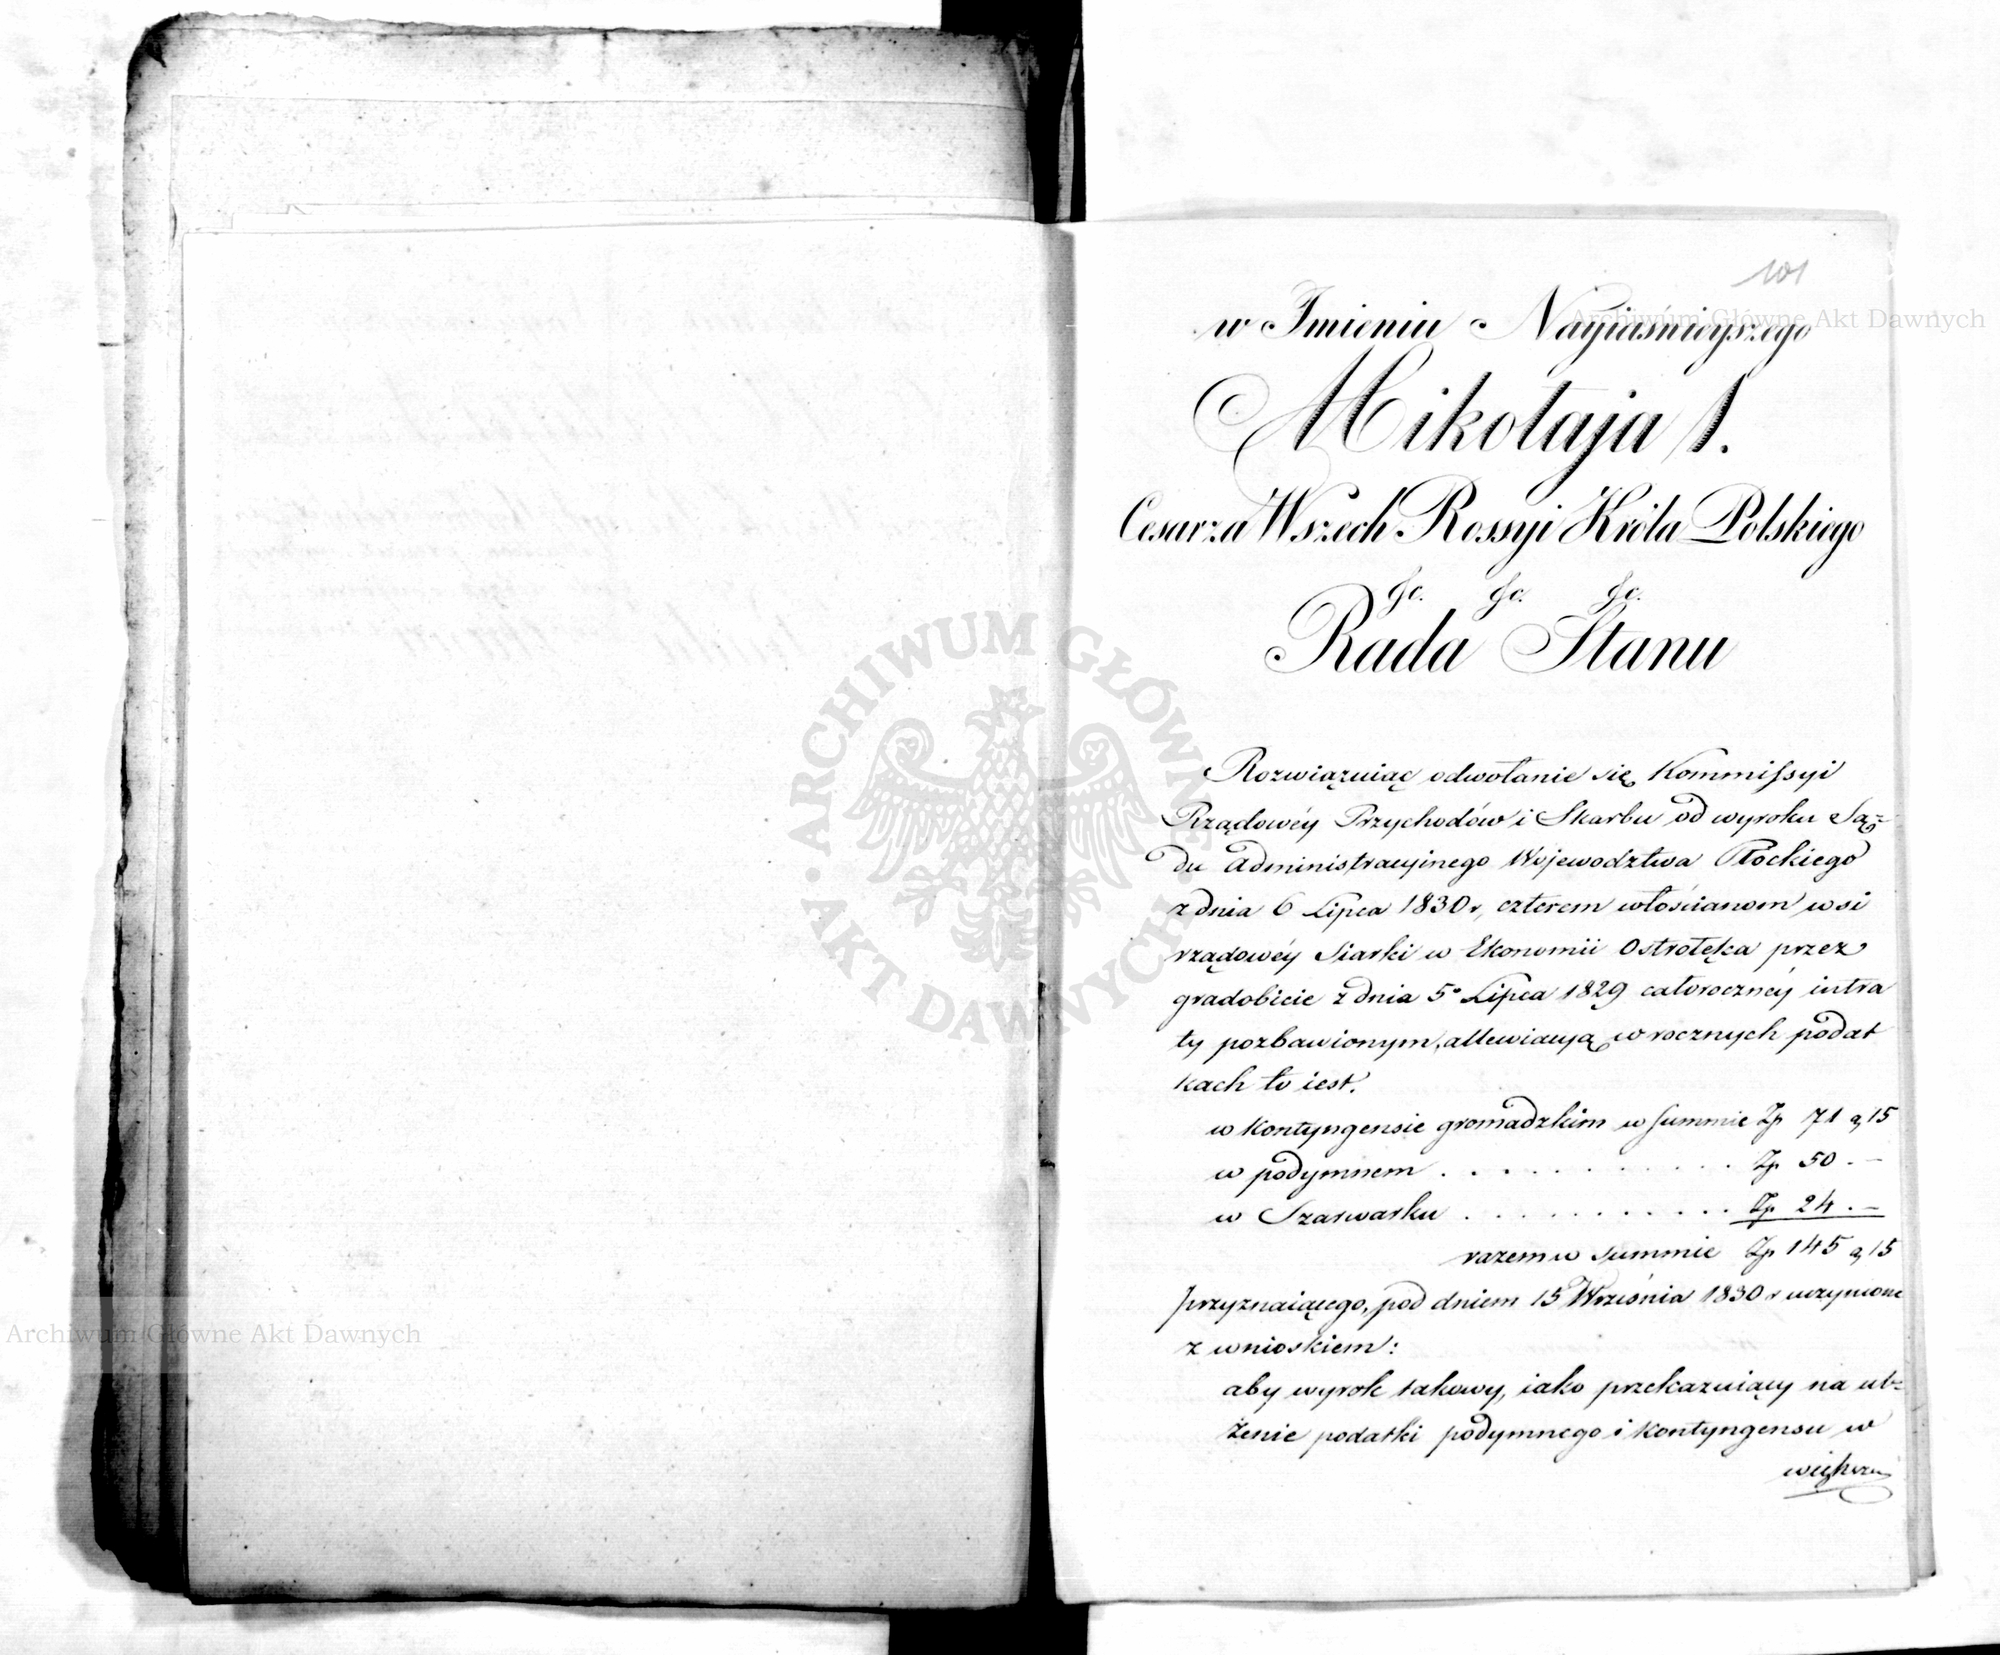 101
w Imieniu Nayiaśnieyszego
Mikołaja I.
Cesarza Wszech Rossyi Króla Polskiego
&c. &c. &c.
Rada Stanu
Rozwiązuiąc odwołanie się Kommissyi
Rządowéy Przychodów i Skarbu od wyroku Są-
du Administracyinego Województwa Płockiego
z dnia 6 Lipca 1830 r, czterem włościanom wsi
rządowéy Siarki w Ekonomii Ostrołęka przez
gradobicie z dnia 5º Lipca 1829 całorocznéy intra
ty pozbawionym, allewiacyą w rocznych podat
kach to iest.
w kontyngensie gromadzkim w summie Zp 71 g 15
w podymnem . . . . . . . . . . . Zp 50 . —
w Szarwarku . . . . . . . . . . . Zp 24 . —
razem w summie Zp 145 g 15
przyznaiącego, pod dniem 15 Września 1830 r uczynione
z wnioskiem:
aby wyrok takowy, iako przekazuiący na ul-
żenie podatki podymnego i kontyngensu w
większéy
Archiwum Główne Akt Dawnych
Archiwum Główne Akt Dawnych
ARCHIWUM GŁÓWNE · AKT DAWNYCH ·